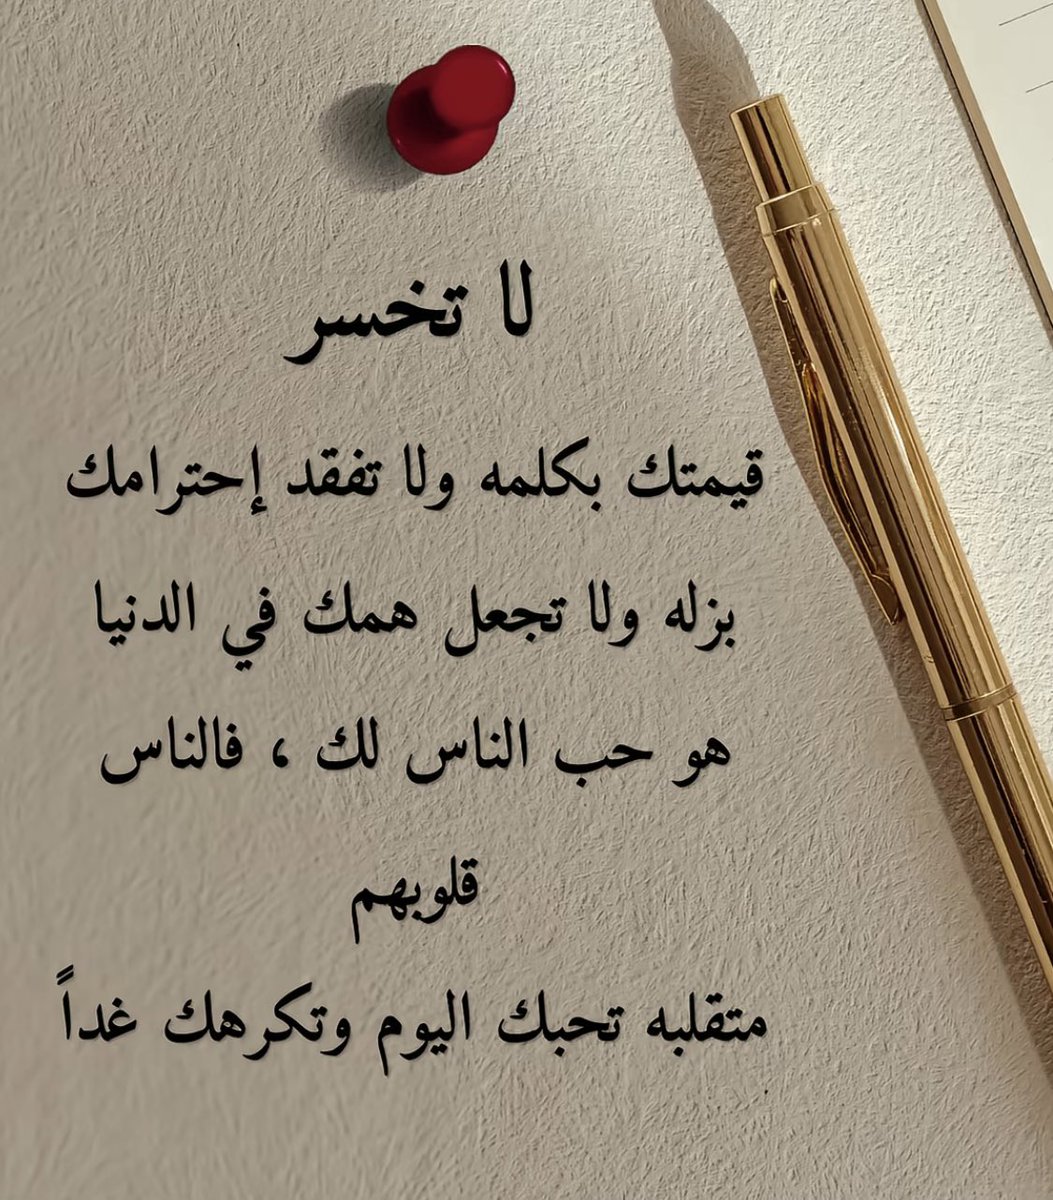 لا تخسر
قيمتك بكلمه ولا تفقد إحترامك
بزله ولا تجعل همك في الدنيا
هو حب الناس لك ، فالناس
قلوبهم
متقلبه تحبك اليوم وتكرهك غداً